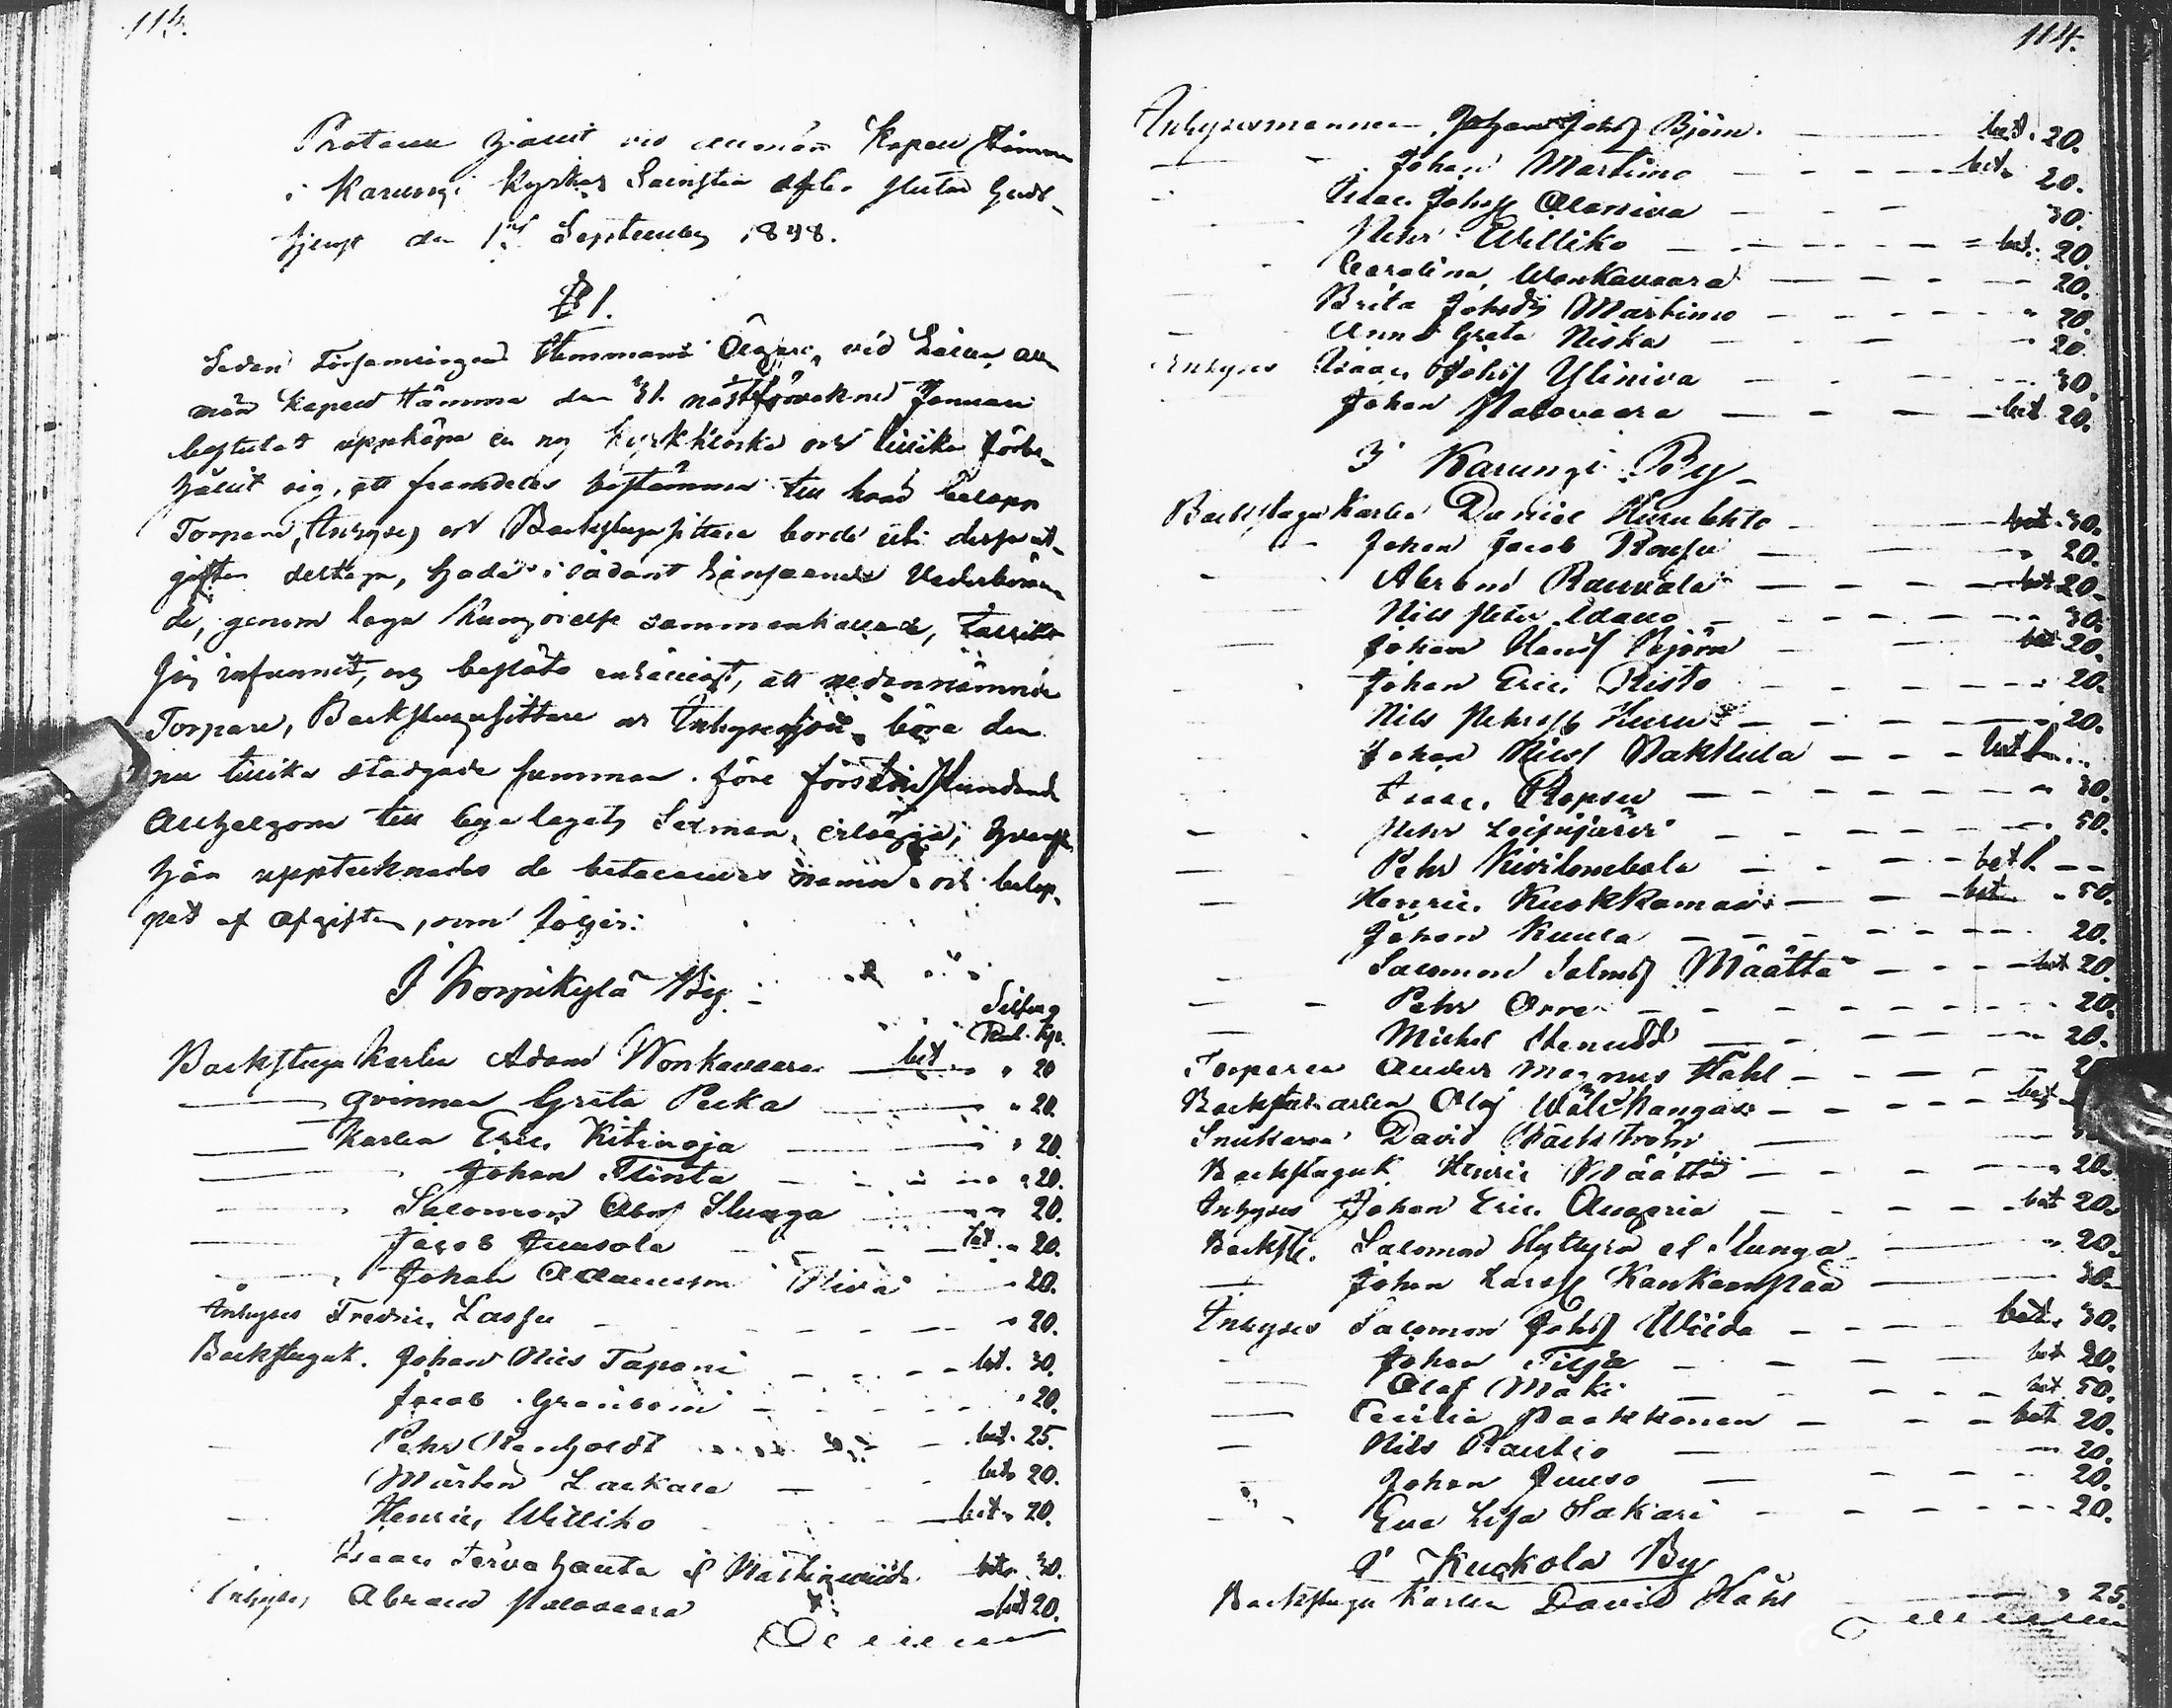 113.
Protocoll hållit vid allmän Kyrkostämma
i Karungi Kyrkas Sacristia efter slutad Guds-
tjenst den 1sta September 1848.
§ 1.
Sedan Församlingens Hemmans Ägare, vid laga all-
män Stämma den 31 nästförvekne Januari
beslutat uppköpa en ny Kyrkklocka och tillika förbe-
hållit sig, att framdeles bestämma till hvad belopp
Torpare, Inhyses och Backstugusittare borde uti dessa ut-
gifter deltaga, hade i sådant hänseende Vederböran-
de, genom laga Kungörelse sammankallade,
sig infunnit, och beslöts enhälligt, att nedannämnde
Torpare, Backstugusittare och Inhyseshjon böra den
nu tillika stadgade summan före först tillstundande
Allhelgona till erlägga, hvarföre
här upptecknades de betalandes namn och belop-
pet af afgiften, som följer:
I Korpikylä By.
Silfver
Rub. Kop.
Backstugu Karlen Adam Wonkavaara bet " 20
qvinnan Greta Pecka " 20.
Karlen Eric Kitinoja " 20.
Johan Flinta " 20.
Salomon Abrs Slunga " 20.
Jacob Juusola bet. " 20.
Johan Adamsson Niva " 20.
Inhyses Fredric Lassu " 20.
Backstuguk. Johan Nils Tapani bet. 30.
Jacob 20.
Pehr Renholdt bet. 25.
Mårten Laukala bet. 20.
Henric Williko bet. 20.
Isaac Tervahauta bet. 30.
Inhyses Abram Palovaara bet 20.
114.
Inhysesmannen Johan Johs Björn bet. 20.
Johan Martimo bet. 20.
Isac Johss Alaniva 30.
Pehr Williko bet. 20.
Carolina Wonkavaara 20.
Brita Johsdr Martimo 20.
Anna Greta Niska 20.
Inhyses Isaac Johs Yliniva 30.
Johan Palovaara bet. 20.
I Karungi By
Backstugu Karlen Daniel Hurulehto bet. 30.
Johan Jacob Rousu 20.
Abram Rauvala bet. 20.
Nils Petter Adamo 30.
Johan Hans Björn bet 20.
Johan Eric Risto 20.
Nils Pehrss Huru 20.
Johan Nils Wakkula bet
Isaac Ropsu 30.
Pehr Leipijärvi 50.
Pehr bet
Henric Kuokkamaa bet. 50.
Johan Kuula 20.
Salomon Salms Määttä bet 20.
Pehr Orre 20.
Michel Stenudd 20.
Torparen Anders Magnus Ståhl
Backstukarlen Olof Wälikangas bet
Snickaren David Bäckström
Backstuguk. Henric Määttä 20.
Inhyses Johan Eric Augeria bet 20.
Backst. Salomon Slunga 20.
Johan Larss Kankaanpää 30.
Inhyses Salomon Johs Wiida bet. 30.
Johan Filpa bet 20.
Olof Mäki bet 50.
Cecilia Paakkonen bet 20.
Nils Rautio 20.
Johan Juuso 20.
Eva Lisa Sakari 20.
I Kuckola By
Backstugu Karlen David Ståhl 25.